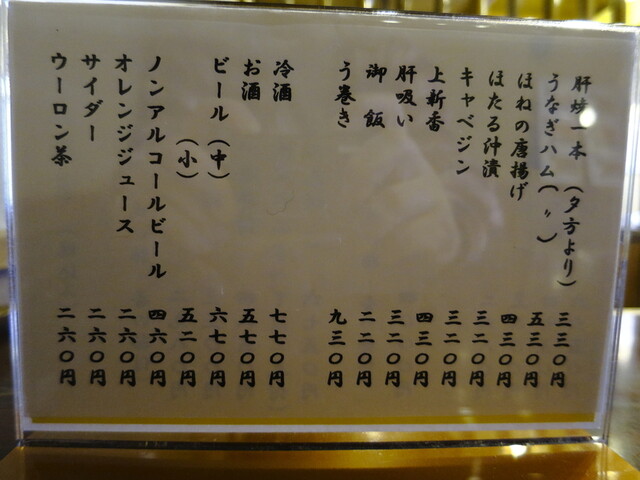 肝焼一本（夕方より） 三三〇円
うなぎハム（〃） 五三〇円
ほねの唐揚げ 四三〇円
ほたる沖漬 三二〇円
キャベジン 三二〇円
上新香 四三〇円
肝吸い 三二〇円
御飯 二二〇円
う巻き 九三〇円
冷酒 七七〇円
お酒 五七〇円
ビール（中） 六七〇円
（小） 五二〇円
ノンアルコールビール 四六〇円
オレンジジュース 二六〇円
サイダー 二六〇円
ウーロン茶 二六〇円